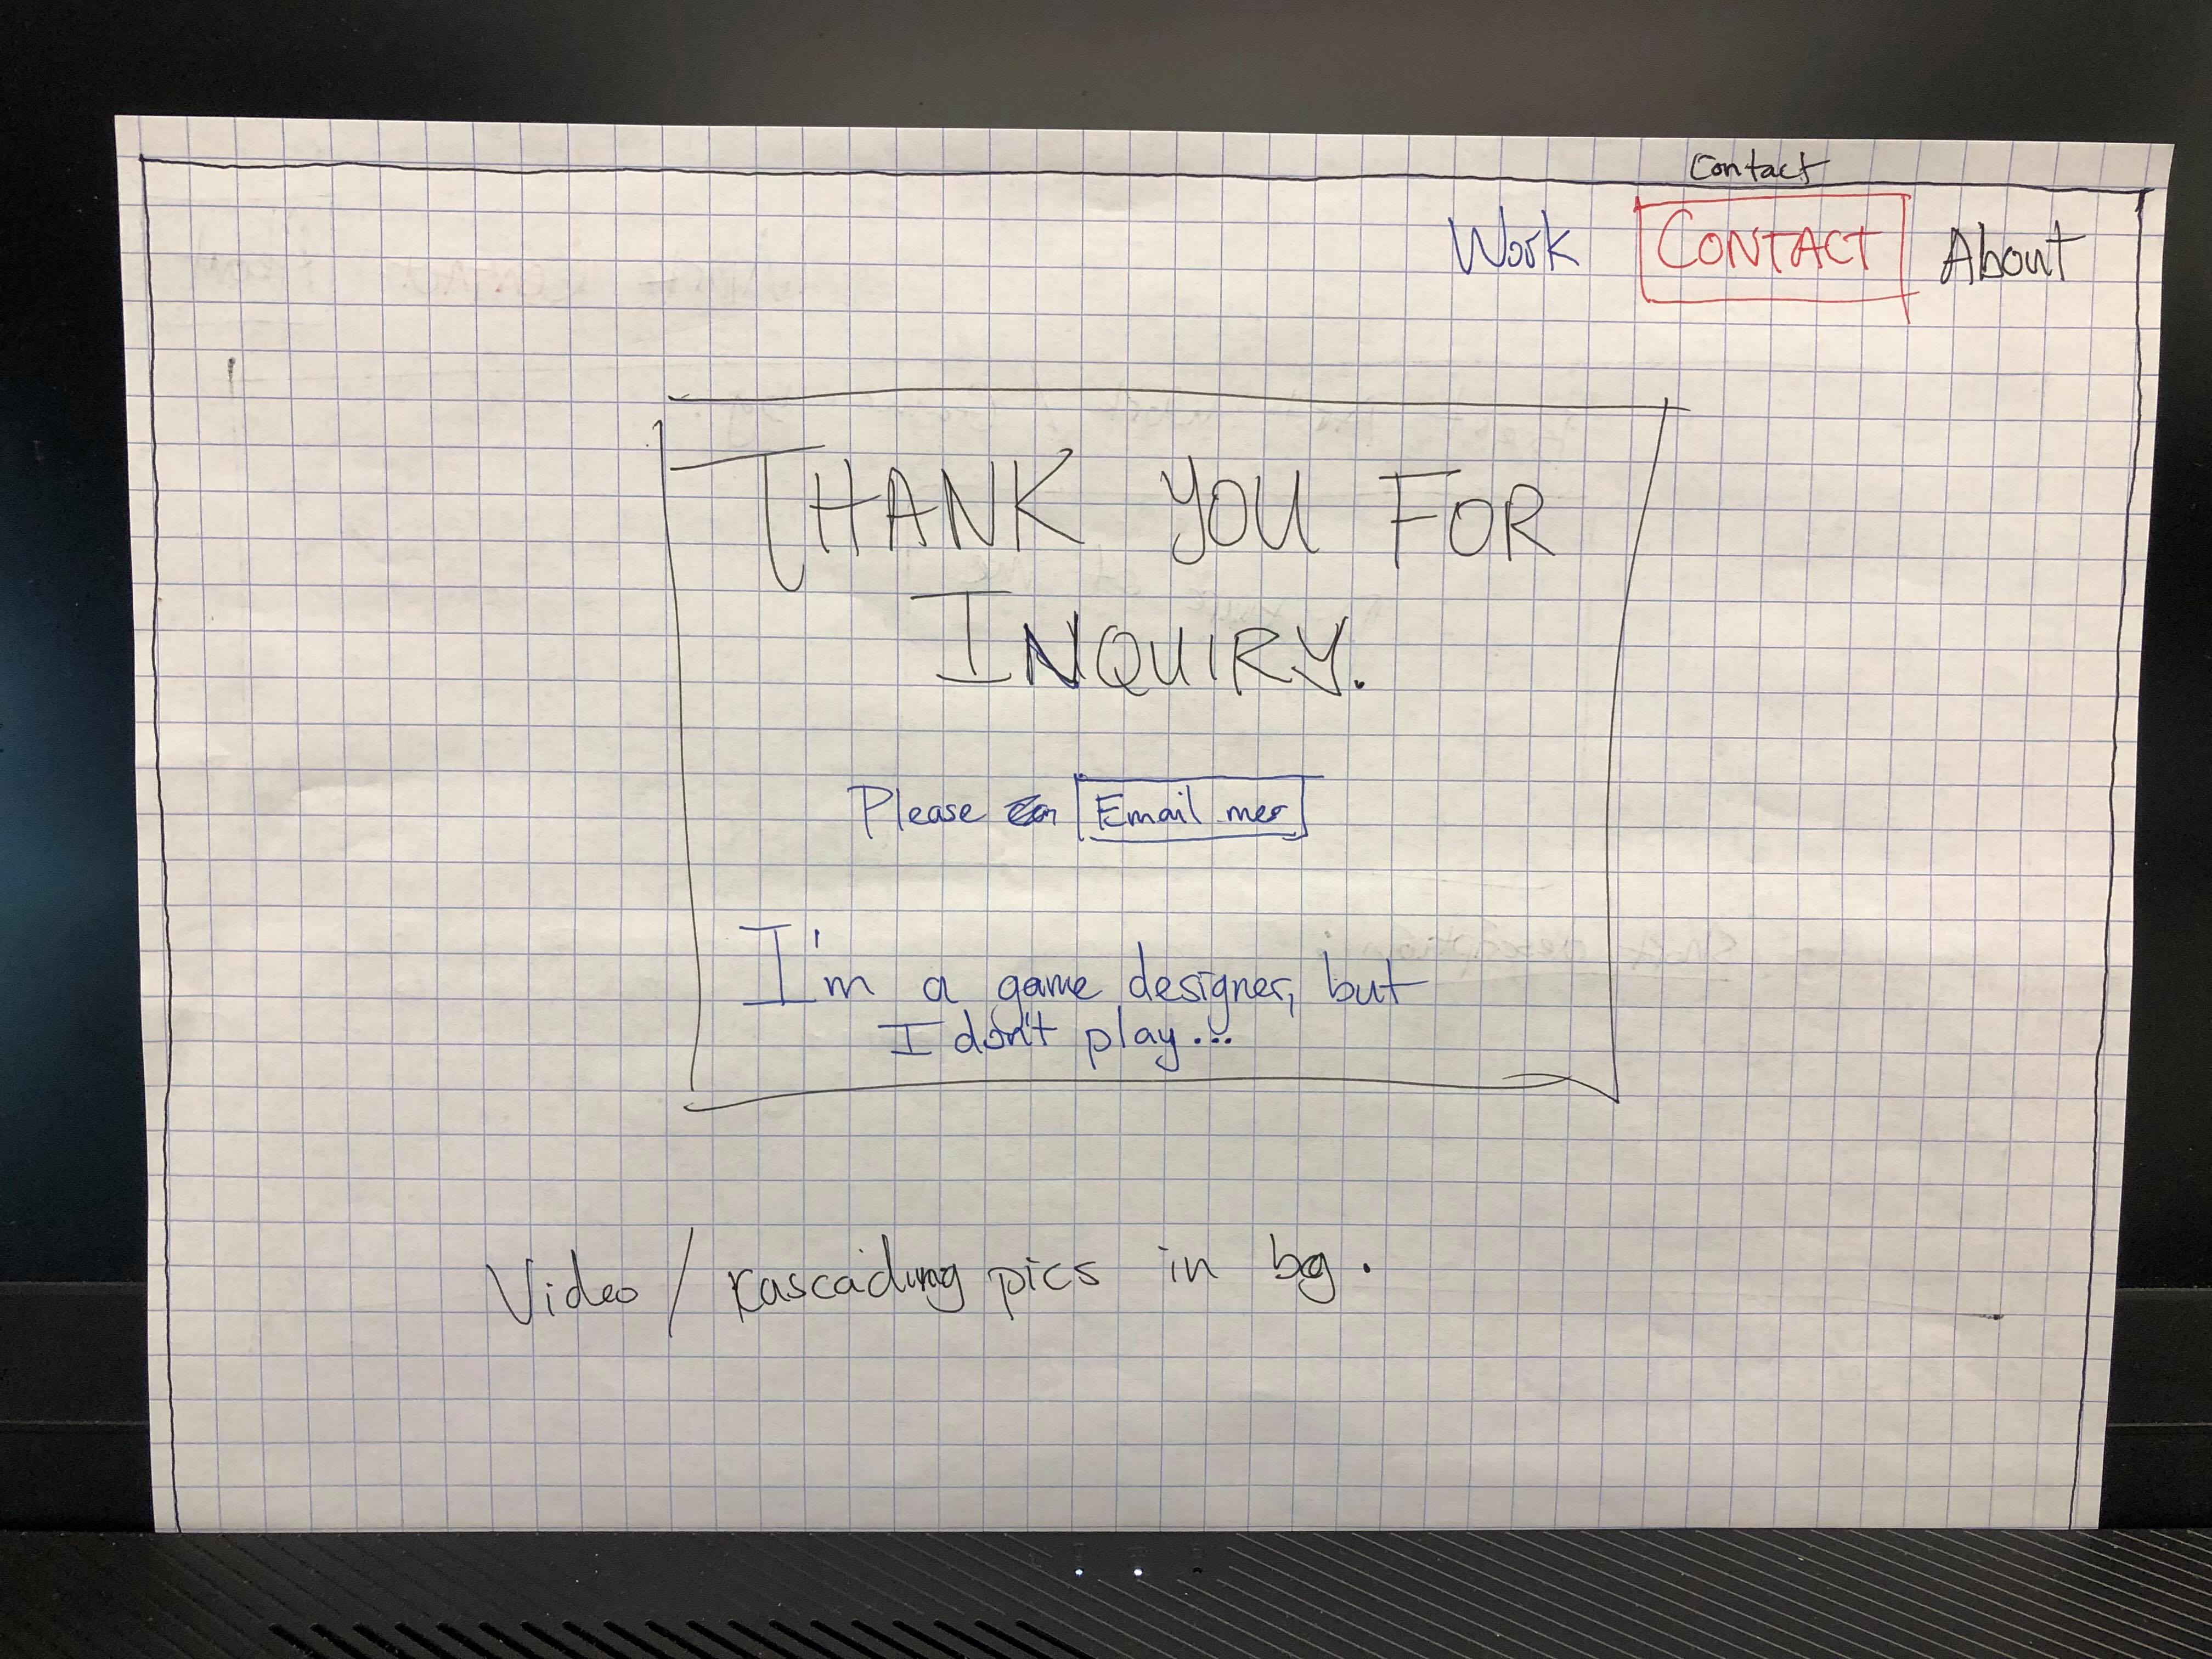 Contact
Work CONTACT About
THANK YOU FOR
INQUIRY.
Please Email me
I'm a game designer, but
I don't play...
Video / kascading pics in bg.